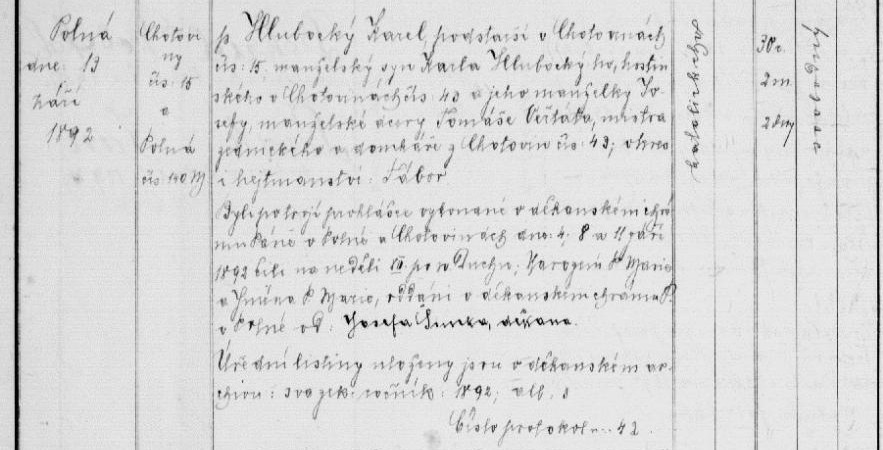 Polná
dne: 13
září
1892
Chotovi
ny
čís: 15
a
Polná
čís: 140 M
p. Hlubocký Karel, podstarší v Chotovinách
čís: 15. manželský syn Karla Hlubockýho, hostin
ského v Chotovinách čís: 43 a jeho manželky Jo
sefy, manželské dcery Tomáše Veřtáta, mistra
zednického a domkáře z Chotovin čís: 43; okres
i hejtmanství: Tábor
Byli po trojí prohlášce vykonané v děkanském chrá
mu Páně v Polné a Chotovinách dne: 4; 8 a 11 září
1892 čili na neděli po sv. Duchu; Narození P. Marie
a Jména P. Marie, oddáni v děkanském chrámu P.
v Polné od: Josefa děkana.
Úřední listiny uloženy jsou v děkanském ar-
chivu: svazek: ročník: 1892;
Číslo protokolu: 42.
katolické
30 r.
2 m.
2 dny
svobodný